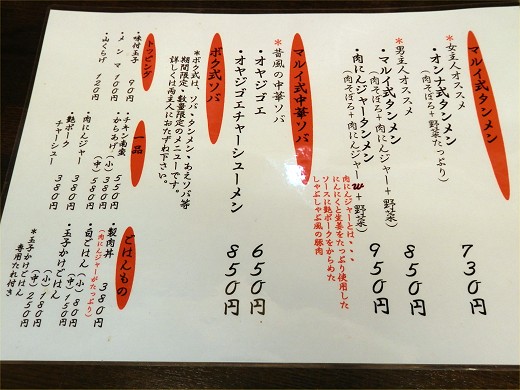 マルイ式タンメン
*女主人オススメ
・オンナ式タンメン
(肉そぼろ+野菜たっぷり)
730円
*男主人オススメ
・マルイ式タンメン
(肉そぼろ+肉にんジャー+野菜)
850円
・肉にんジャータンメン
(肉そぼろ+肉にんジャーW+野菜)
950円
肉にんジャーとは、、、
にんにくと生姜をたっぷり使用した
ソースに艶ポークをからめた
しゃぶしゃぶ風の豚肉
マルイ式中華ソバ
*昔風の中華ソバ
・オヤジゴエ
650円
・オヤジゴエチャーシューメン
850円
ボク式ソバ
*ボク式は、ソバ・タンメン・あえソバ等
期間限定・数量限定のメニューです。
詳しくは両主人におたずね下さい。
トッピング
・味付玉子 90円
・メンマ 100円
・山くらげ 120円
一品
・チキン南蛮 550円
・からあげ (小) 380円
(中) 580円
・肉にんジャー 380円
・艶ポーク
チャーシュー 380円
ごはんもの
・製肉丼 380円
(肉にんジャーがたっぷり)
・白ごはん (小) 80円
(中) 150円
・玉子かけごはん (小) 180円
(中) 250円
*玉子かけごはん
専用たれ付き